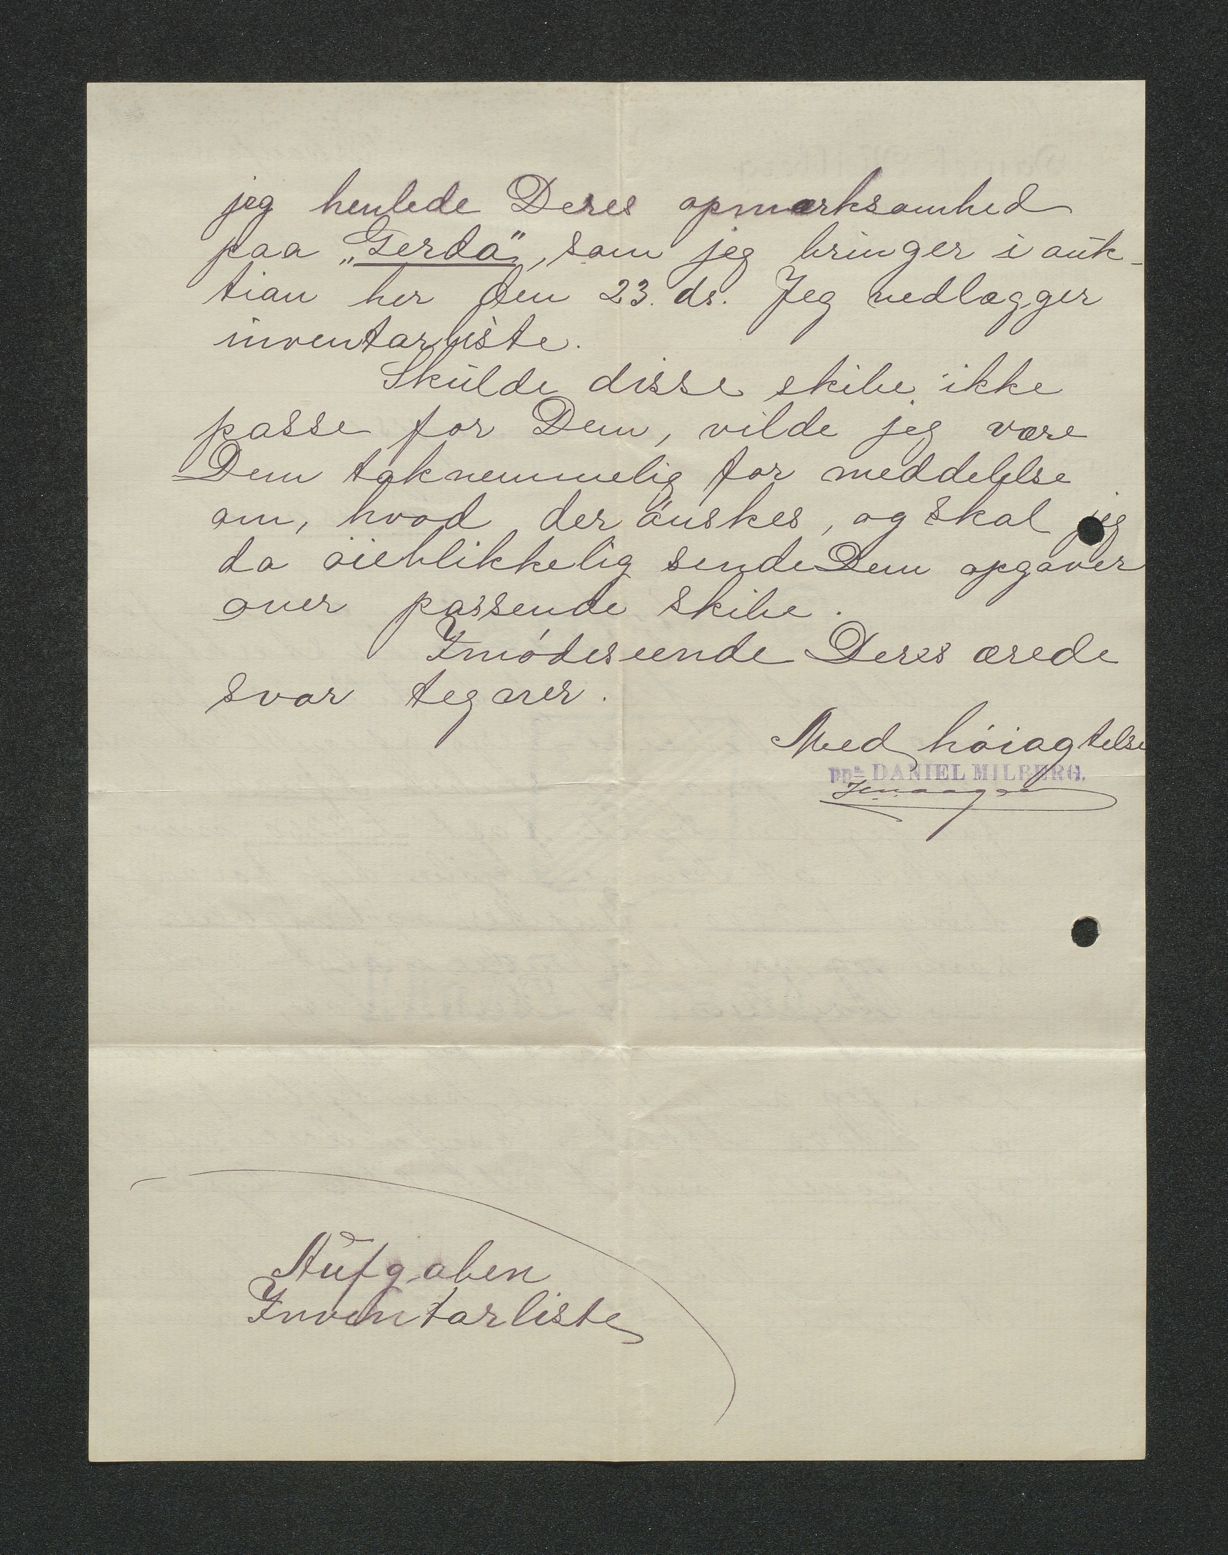 jeg henlede Deres opmærksomhed
paa „Gerda", som jeg bringer i auk-
tion her den 23. ds. Jeg vedlægger
inventarliste.
Skulde disse skibe ikke
passe for Dem, vilde jeg være
Dem taknemmelig for meddelelse
om, hvad der önskes, og skal jeg
da öieblikkelig sende Dem opgaver
over passende skibe.
Imödeseende Deres ærede
svar tegner.
Med höiagtelse
ppa DANIEL MILBERG.
Aufgaben
Inventarliste